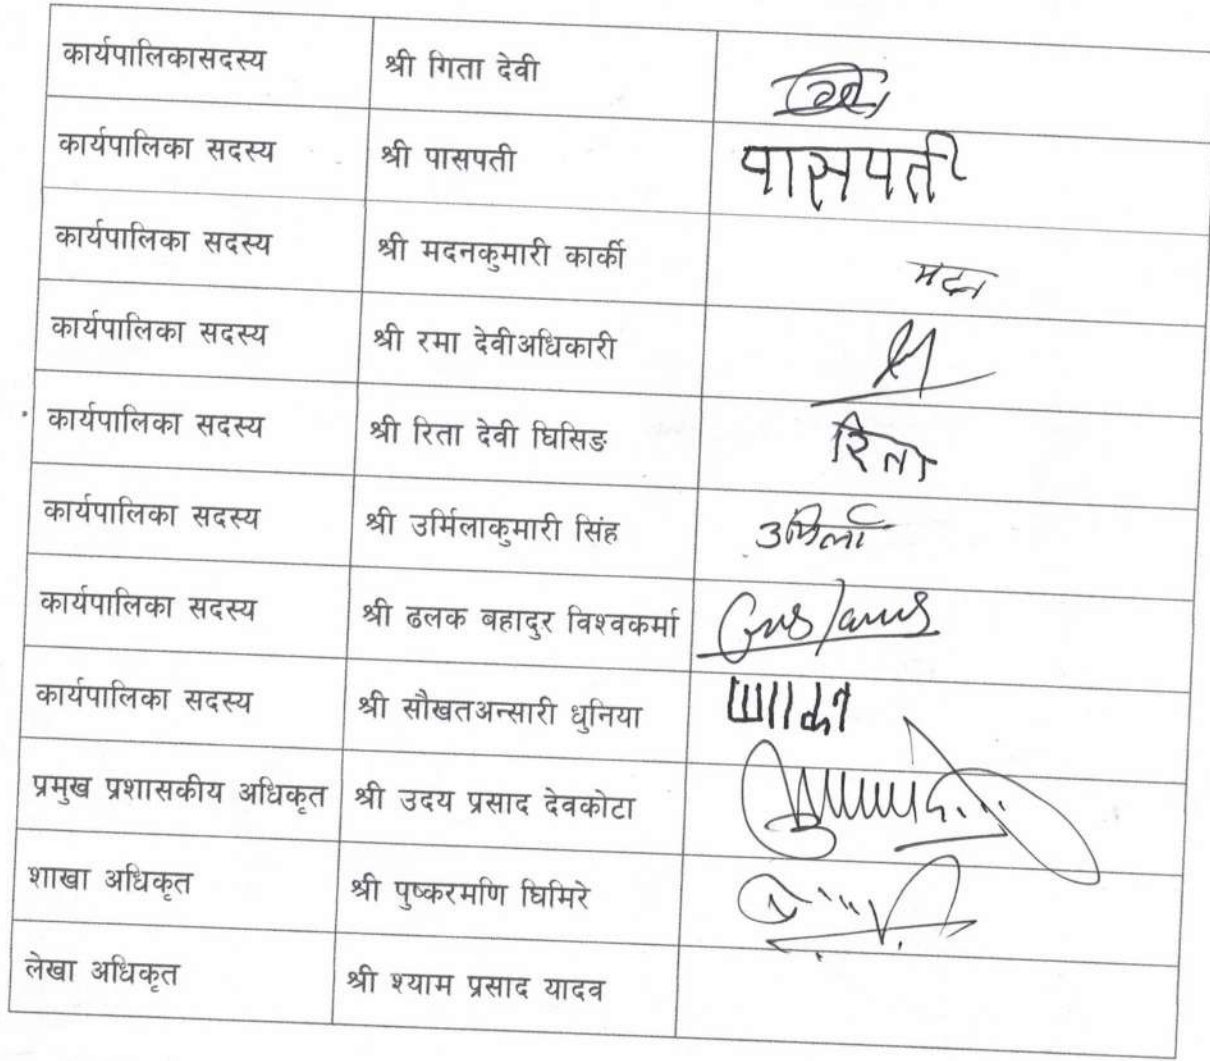 कार्यपालिकासदस्य श्री गिता देवी
कार्यपालिका सदस्य श्री पासपती पासपती
कार्यपालिका सदस्य श्री मदनकुमारी कार्की मदन
कार्यपालिका सदस्य श्री रमा देवीअधिकारी
कार्यपालिका सदस्य श्री रिता देवी घिसिङ रिता
कार्यपालिका सदस्य श्री उर्मिलाकुमारी सिंह उर्मिला
कार्यपालिका सदस्य श्री ढलक बहादुर विश्वकर्मा
कार्यपालिका सदस्य श्री सौखतअन्सारी धुनिया
प्रमुख प्रशासकीय अधिकृत श्री उदय प्रसाद देवकोटा
शाखा अधिकृत श्री पुष्करमणि घिमिरे
लेखा अधिकृत श्री श्याम प्रसाद यादव